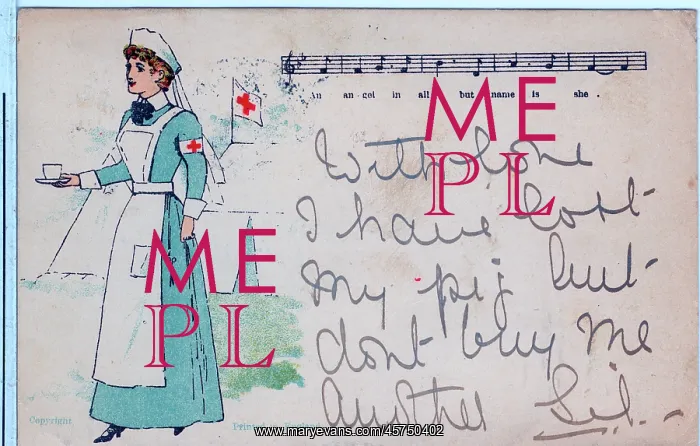 An an-gel in all but name is she.
With love
I have lost
My pig but
dont buy me
Another Sis.
ME
PL
ME
PL
Copyright
www.maryevans.com/45750402